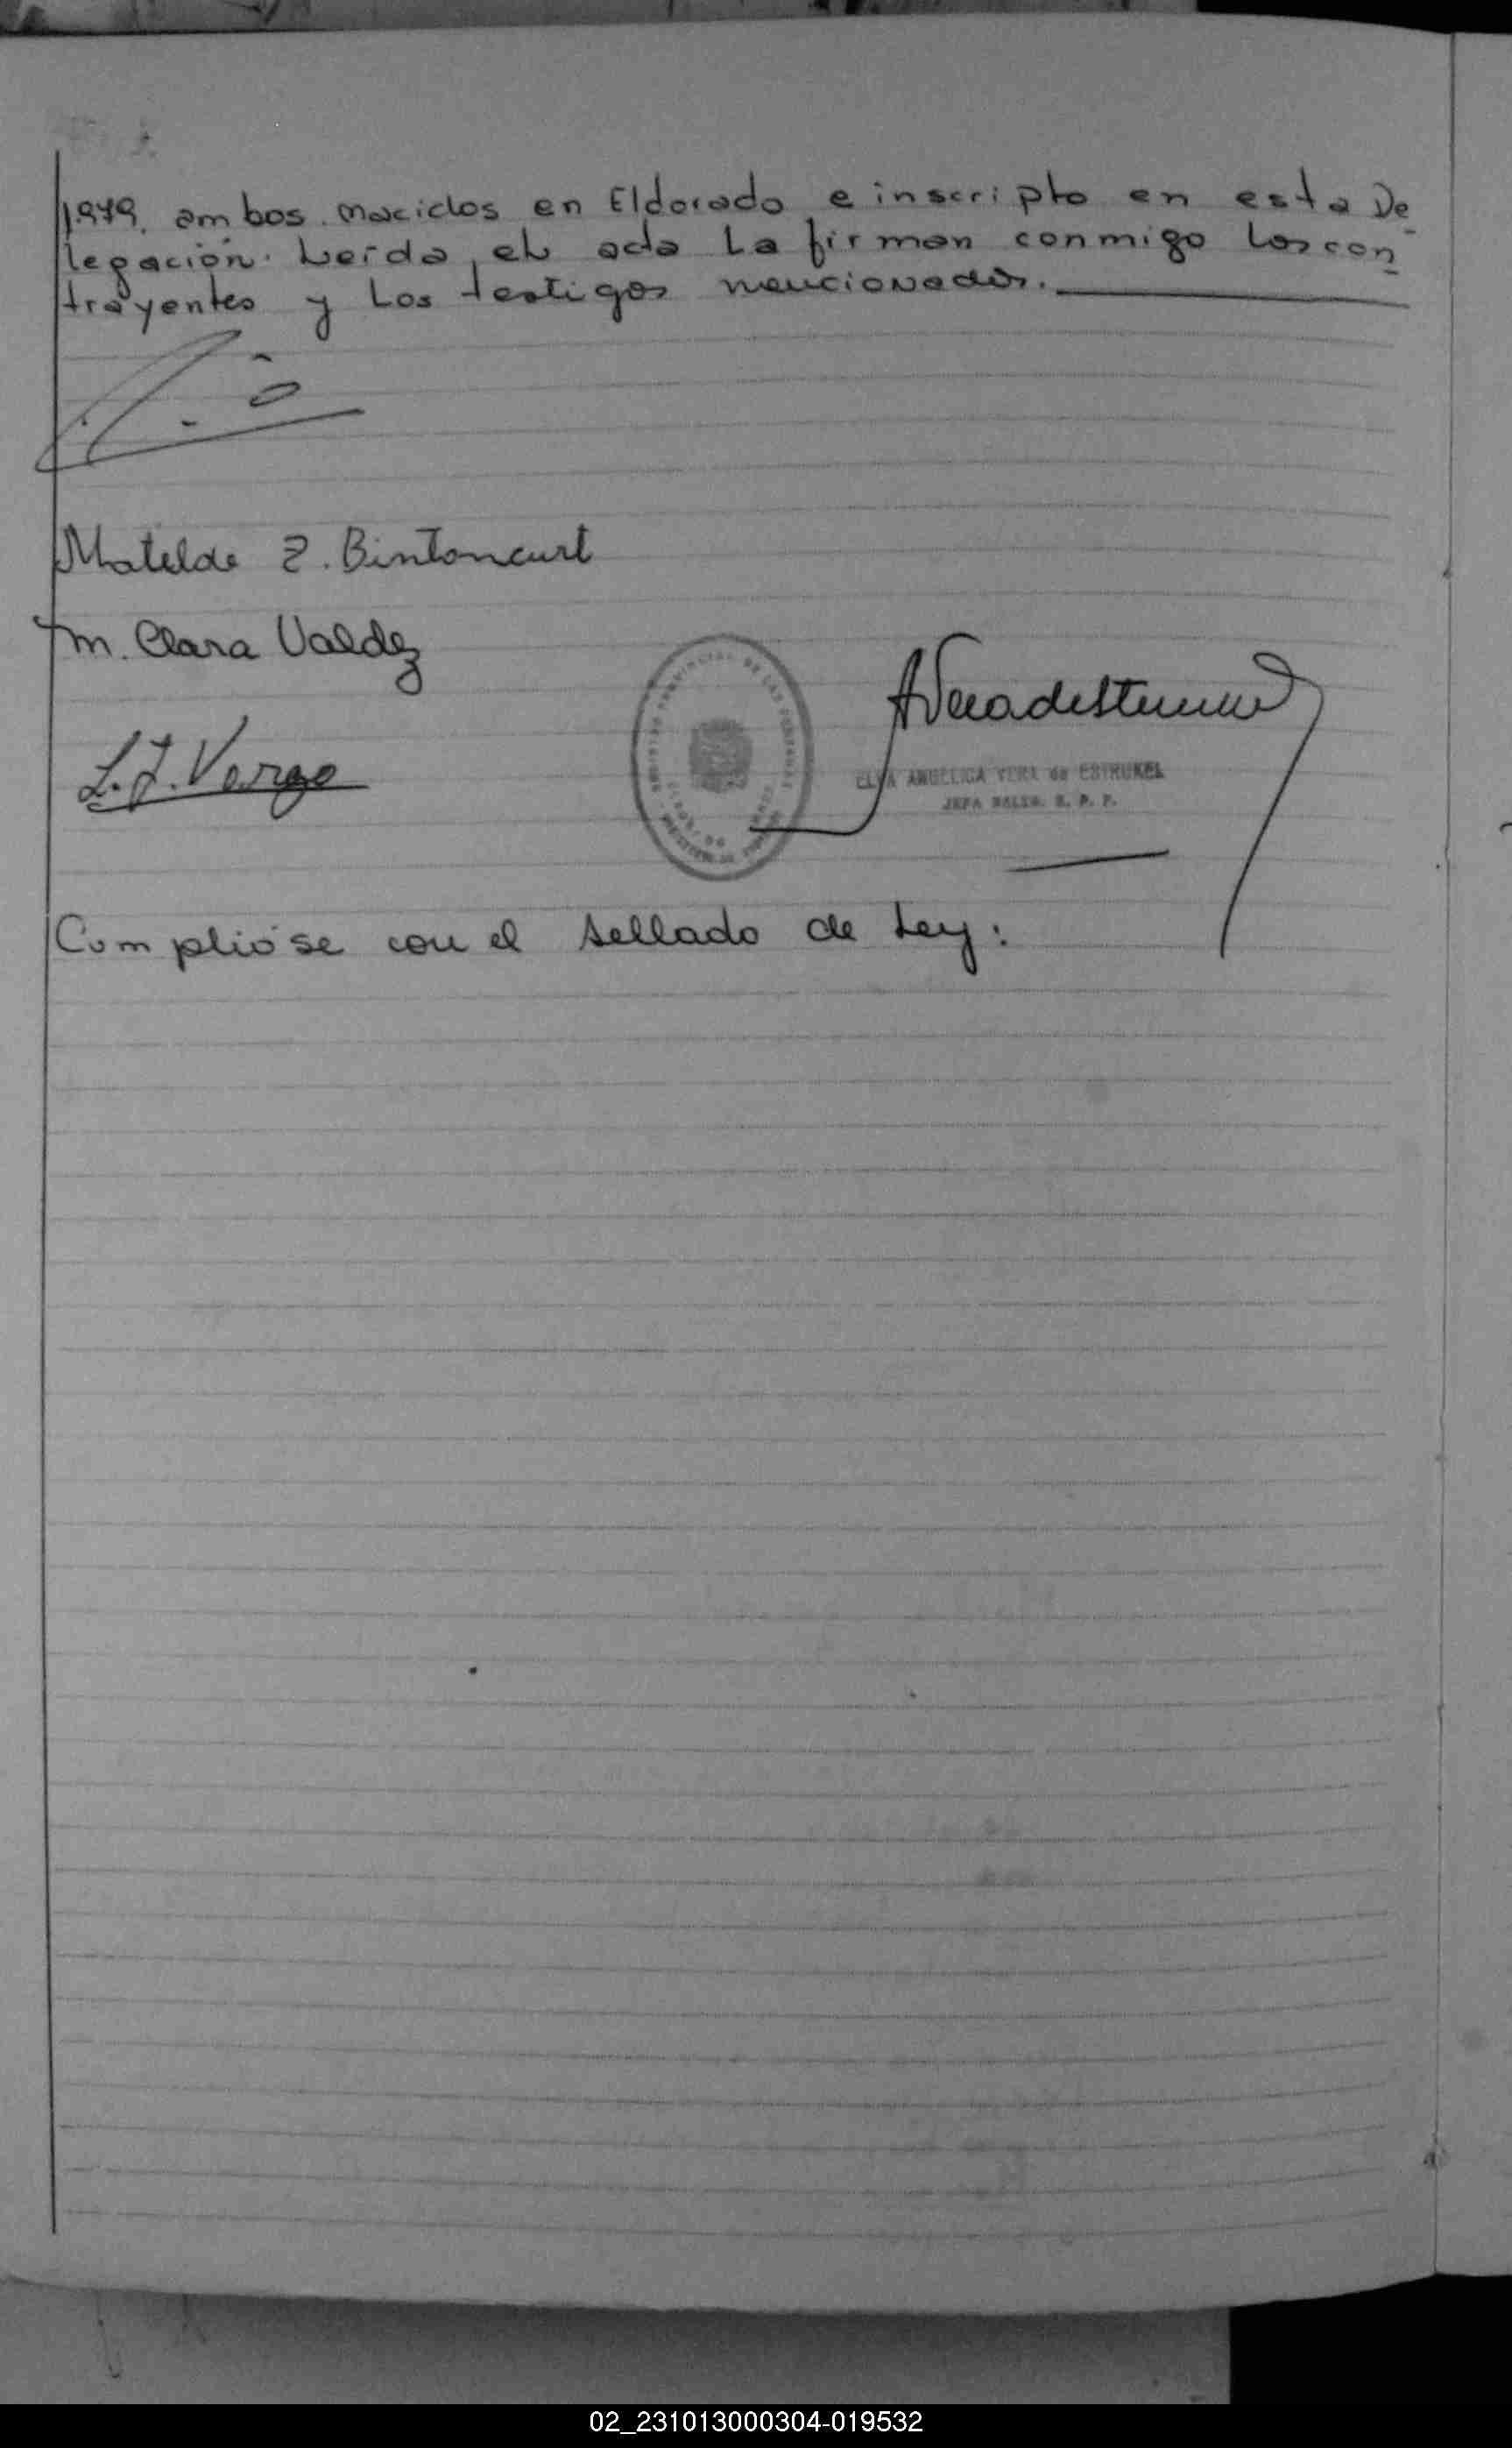 1.979, ambos nacidos en Eldorado e inscripto en esta De
legación. Leída el acta La firman conmigo los con
trayentes y Los testigos mencionados.
Matilde Z. Bintoncurt
M. Clara Valdez
L. J. Vargo
ANGELICA VERA de ESTRUKEL
JEFA
Cumplióse con el sellado de Ley:
02_231013000304-019532